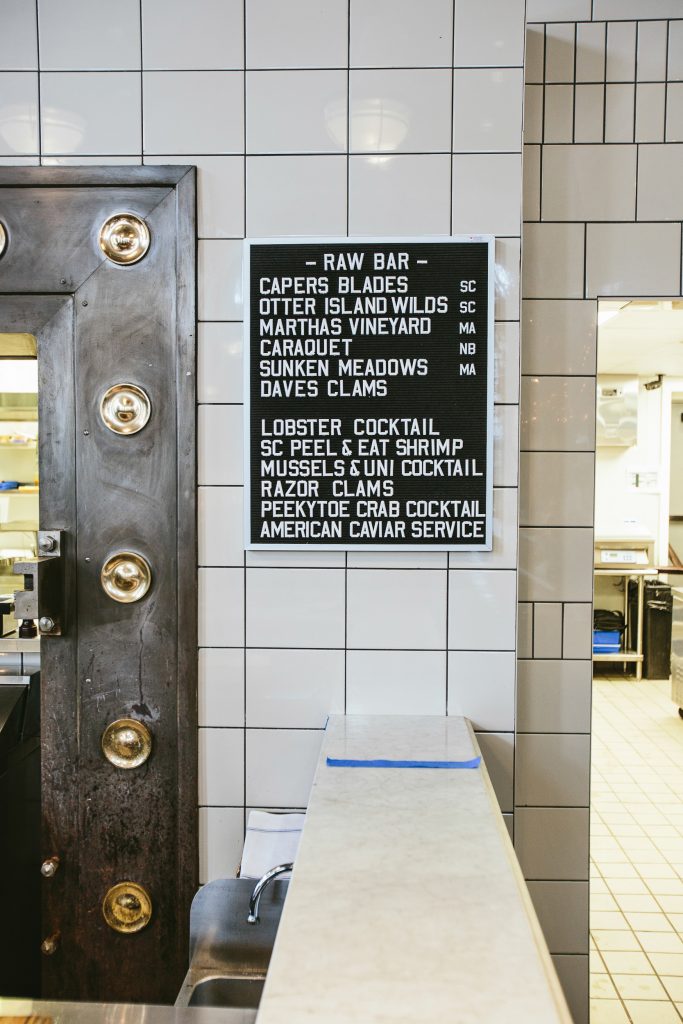 - RAW BAR -
CAPERS BLADES SC
OTTER ISLAND WILDS SC
MARTHAS VINEYARD MA
CARAQUET NB
SUNKEN MEADOWS MA
DAVES CLAMS
LOBSTER COCKTAIL
SC PEEL & EAT SHRIMP
MUSSELS & UNI COCKTAIL
RAZOR CLAMS
PEEKYTOE CRAB COCKTAIL
AMERICAN CAVIAR SERVICE